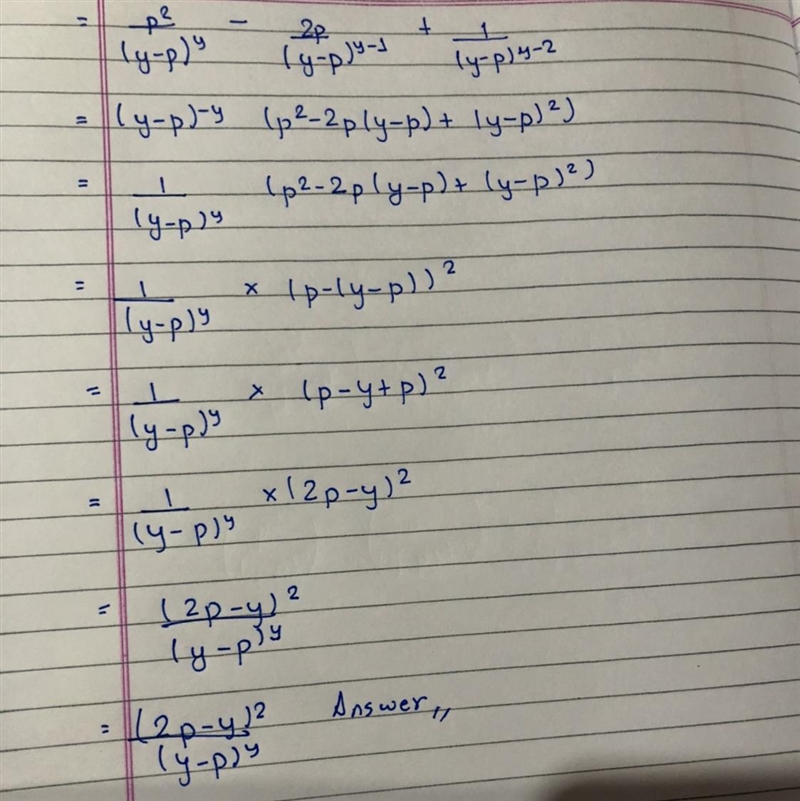 = p²/(y-p)^y - 2p/(y-p)^(y-1) + 1/(y-p)^(y-2)
= (y-p)^-y (p²-2p(y-p)+(y-p)²)
= 1/(y-p)^y (p²-2p(y-p)+(y-p)²)
= 1/(y-p)^y × (p-(y-p))²
= 1/(y-p)^y × (p-y+p)²
= 1/(y-p)^y ×(2p-y)²
= (2p-y)²/(y-p)^y
= (2p-y)²/(y-p)^y Answer,,